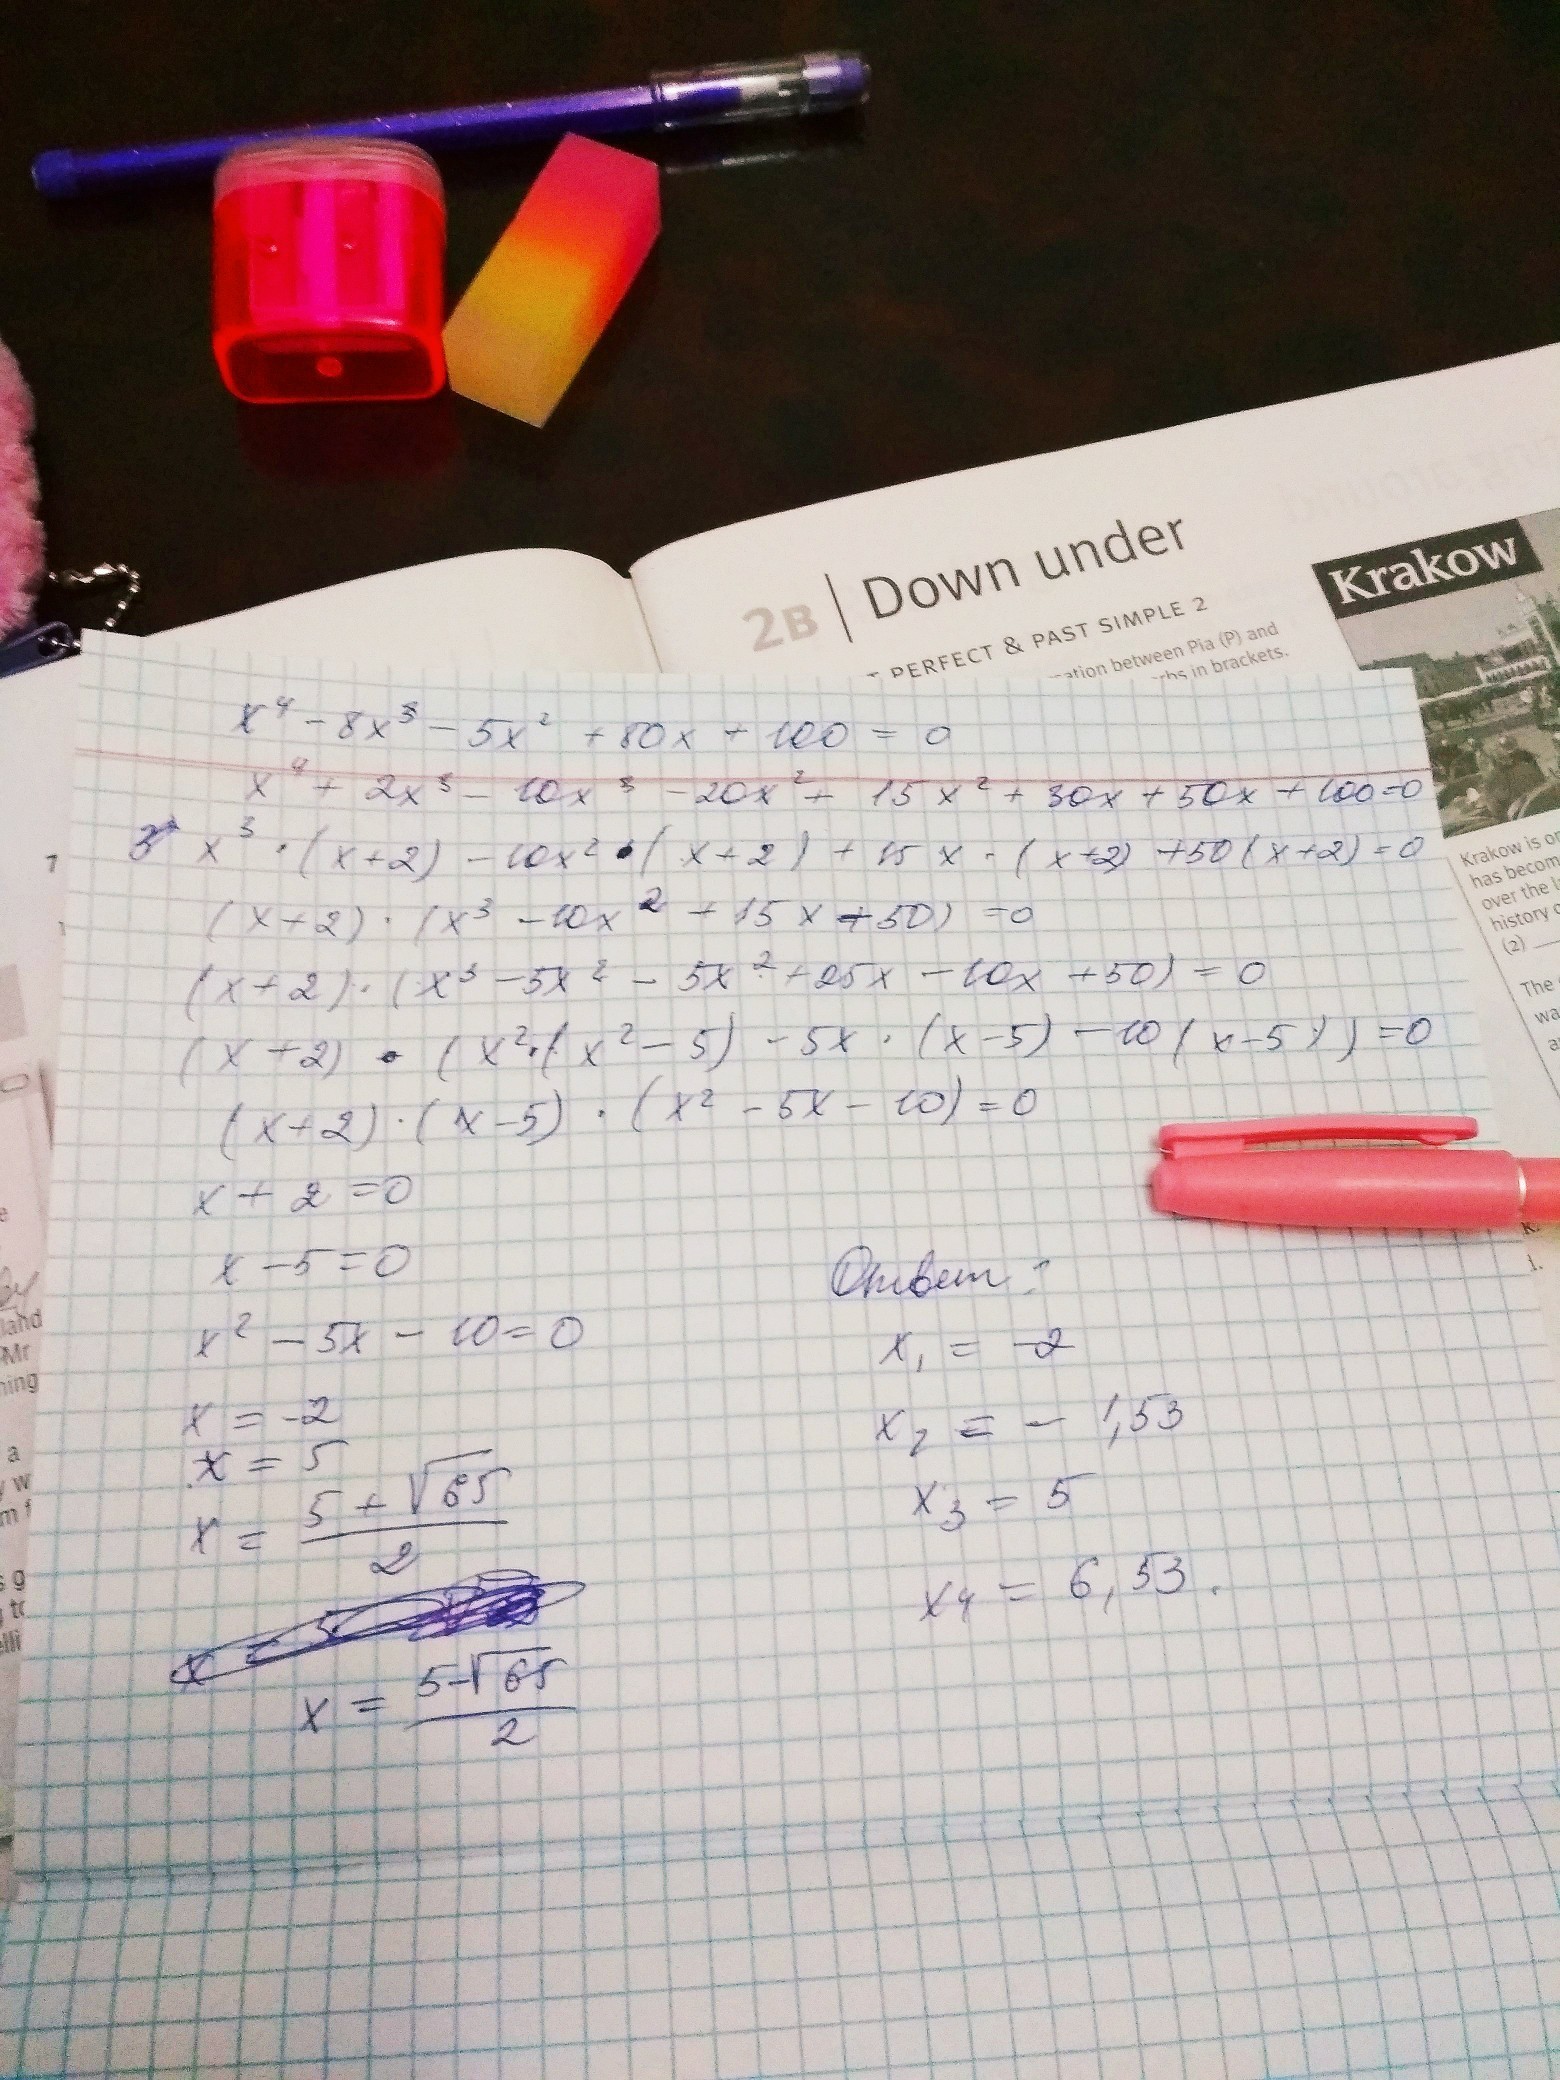 2B | Down under
T PERFECT & PAST SIMPLE 2
ation between Pia (P) and
rbs in brackets.
Krakow
Krakow is or
has becom
over the l
history o
(2)
The
wa
a
7
land
Mr
ning
a
y w
m f
s g
g tr
elli
x⁴ - 8x³ - 5x² + 80x + 100 = 0
x⁴ + 2x³ - 10x³ - 20x² + 15x² + 30x + 50x + 100 = 0
x³ · (x+2) - 10x² · (x+2) + 15x · (x+2) + 50(x+2) = 0
(x+2) · (x³ - 10x² + 15x + 50) = 0
(x+2) · (x³ - 5x² - 5x² + 25x - 10x + 50) = 0
(x+2) · (x² · (x² - 5) - 5x · (x-5) - 10(x-5)) = 0
(x+2) · (x-5) · (x² - 5x - 10) = 0
x + 2 = 0
x - 5 = 0
x² - 5x - 10 = 0
x = -2
x = 5
x = (5 + √65)/2
x = (5-√65)/2
Ответ:
x₁ = -2
x₂ = - 1,53
x₃ = 5
x₄ = 6,53.